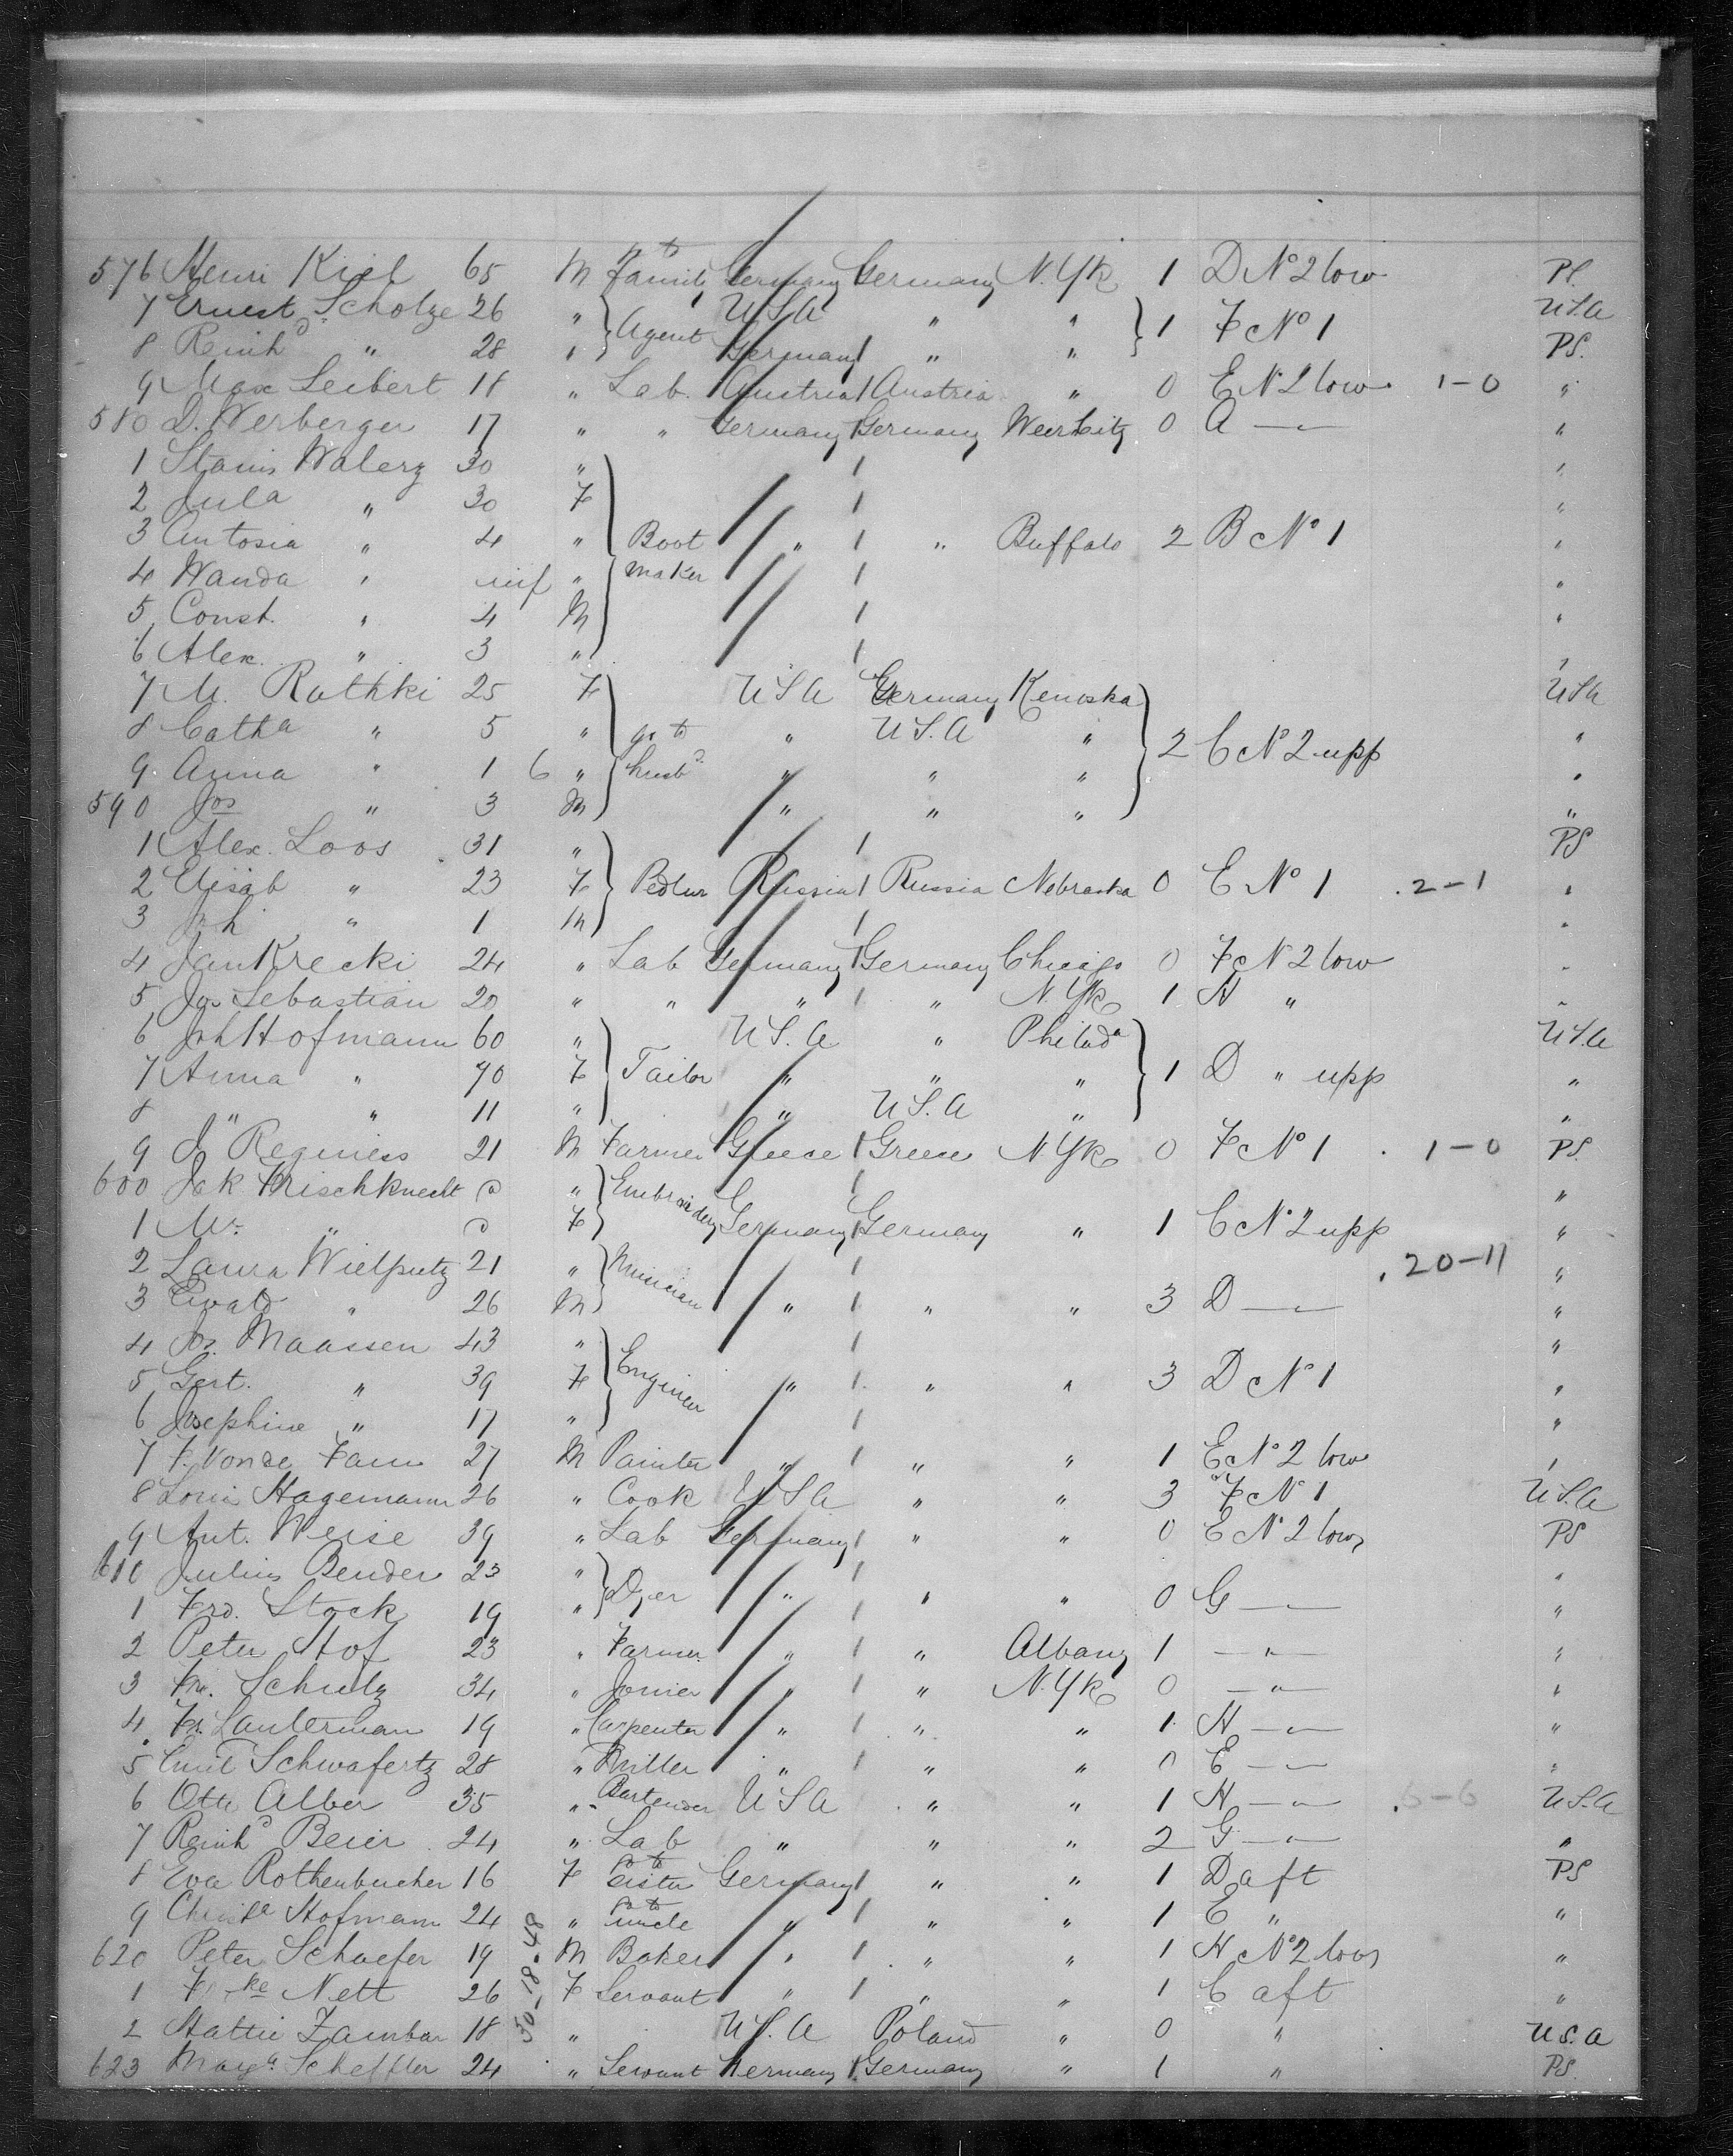 576 Henri Kiel 65 M to Family Germany Germany N.Yk 1 D No 2 low P.S.
7 Ernest Scholze 26 " } Agent U S A " " } 1 F No 1 U.S.A
8 Reinhd " 28 " Germany " " P.S.
9 Max Seibert 18 " Lab. Austria Austria " 0 E No 2 low 1-0 "
580 D. Werberger 17 " " Germany Germany 0 A — " — "
1 Stanis Walery 30 " "
2 Jula " 30 F "
3 Antosia " 4 " Boot " " Buffalo 2 B No 1 "
4 Wanda " inf " maker "
5 Const. " 4 M "
6 Alex. " 3 " "
7 M. Rathki 25 F U S A Germany Kenoska U S A
8 Catha " 5 " go to " U.S.A " 2 C No 2 upp "
9 Anna " 1 6 " husbd " " " "
590 Jos " 3 M " " " "
1 Alex. Loos 31 " PS
2 Elisab " 23 F Pedlur Russia Russia Nebraska 0 E No 1 2-1 "
3 Joh " 1 M "
4 Jan Krecki 24 " Lab Germany Germany Chicago 0 F No 2 low "
5 Jos Sebastian 20 " " " " N.Yk 1 H " "
6 Joh Hofmann 60 " U S. A " Philada U S.A
7 Anna " 70 F Tailor " " " 1 D " upp "
8 " " 11 " " U S. A " "
9 J. Reginiess 21 M Farmer Greece Greece N Yk 0 F No 1 1-0 PS.
600 Jak Frischknecht " Embroidery "
1 Mrs " F Germany Germany " 1 C No 2 upp "
2 Laura Wielputz 21 " Musician 20-11 "
3 Ewald " 26 M " " " 3 D — " — "
4 Jos. Maassen 43 " "
5 Gert. " 39 F Engineer " " " 3 D No 1 "
6 Josephine " 17 " "
7 F. Vonde Fann 27 M Painter " " " 1 E No 2 low "
8 Louis Hagemann 26 " Cook U S A " " 3 F No 1 U S.A
9 Ant. Weise 39 " Lab Germany " " 0 E No 2 low PS
610 Julius Bender 23 " "
1 Frd. Stock 19 " Dyer " " " 0 G — " — "
2 Peter Hof 23 " Farmer " " Albany 1 — " — "
3 Fr. Schulz 34 " Joiner " " N.Yk 0 — " — "
4 Fr. Lauterman 19 " Carpenter " " " 1 H — " — "
5 Emil Schwafertz 28 " Miller " " " 0 E — " — "
6 Otto Alber 35 " Bartender U S A " " 1 H — " — 6-6 U S.A
7 Reinhd Beier 24 " Lab " " " 2 G — " — "
8 Eva Rothenbucher 16 F to Sister Germany " " 1 D aft PS
9 Christe Hofmann 24 " to uncle " " " 1 E " "
620 Peter Schaefer 19 M Baker " " " 1 H No 2 low "
1 Frke Nett 26 F Servant " " " 1 C aft "
30-18-48
2 Hattie Zambar 18 " U S. A Poland " 0 " U S. A
623 Marga Scheffler 24 " Servant Germany Germany " 1 " PS.